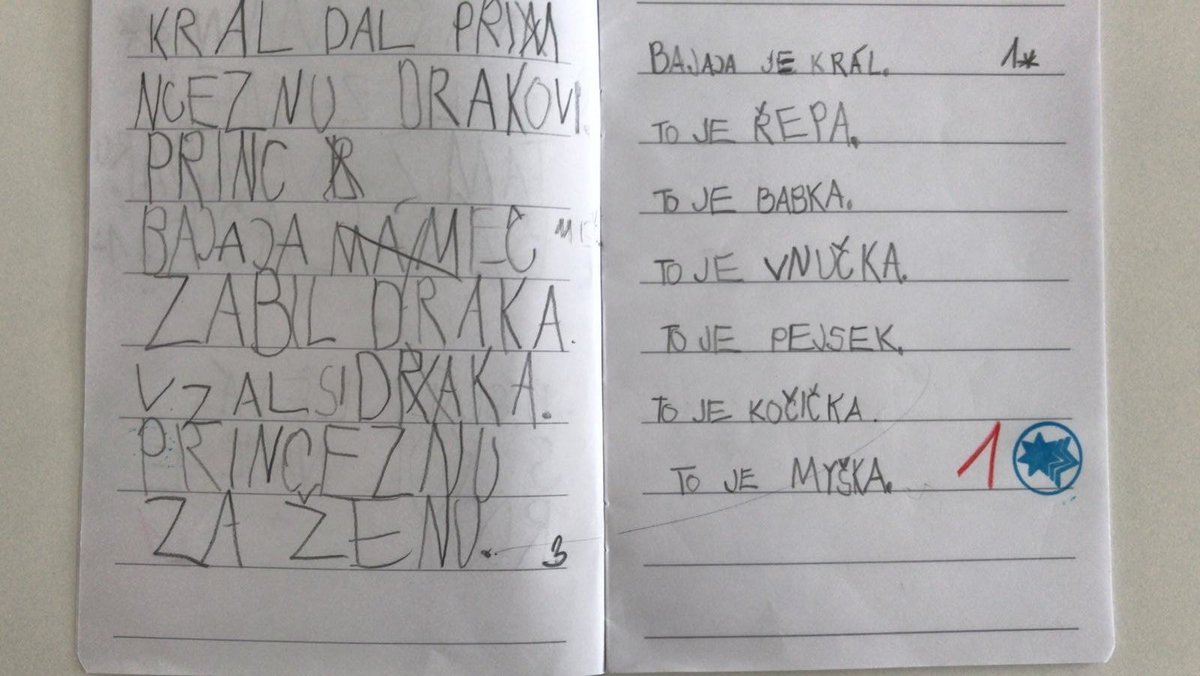 KRÁL DAL PRI
NCEZNU DRAKOVI.
PRINC
BAJAJA MÁ MEČ
ZABIL DRAKA.
VZAL SI DRAKA.
PRINCEZNU
ZA ŽENU.
3
BAJAJA JE KRÁL. 1*
TO JE ŘEPA.
TO JE BABKA.
TO JE VNUČKA.
TO JE PEJSEK.
TO JE KOČIČKA.
TO JE MYŠKA. 1